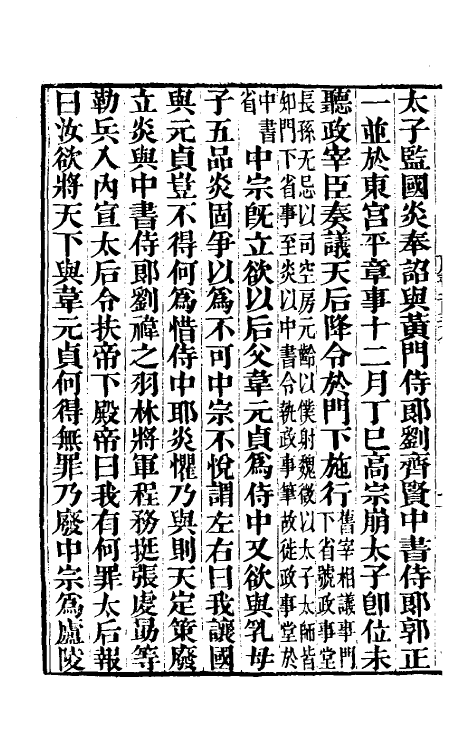 太子監國炎奉詔與黃門侍郎劉齊賢中書侍郎郭正
一並於東宮平章事十二月丁巳高宗崩太子卽位未
聽政宰臣奏議天后降令於門下施行舊宰相議事門
下省號政事堂
長孫无忌以司空房元齡以僕射魏徵以太子太師皆
知門下省事至炎以中書令執政事筆故徙政事堂於
中書
省
中宗旣立欲以后父韋元貞爲侍中又欲與乳母
子五品炎固爭以爲不可中宗不悅謂左右曰我讓國
與元貞豈不得何爲惜侍中耶炎懼乃與則天定策廢
立炎與中書侍郎劉禕之羽林將軍程務挺張虔勖等
勒兵入內宣太后令扶帝下殿帝曰我有何罪太后報
曰汝欲將天下與韋元貞何得無罪乃廢中宗爲廬陵